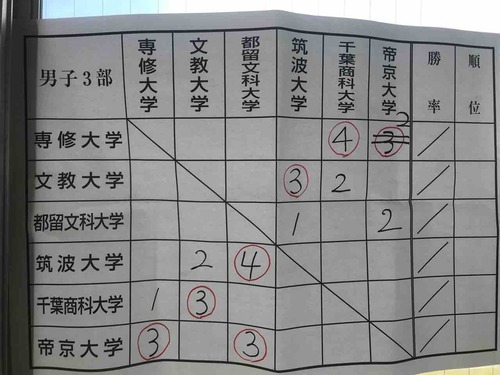 男子3部 専修大学 文教大学 都留文科大学 筑波大学 千葉商科大学 帝京大学 勝率 順位
専修大学 ④ ③ 2 /
文教大学 ③ 2 /
都留文科大学 1 2 /
筑波大学 2 ④ /
千葉商科大学 1 ③ /
帝京大学 ③ ③ /